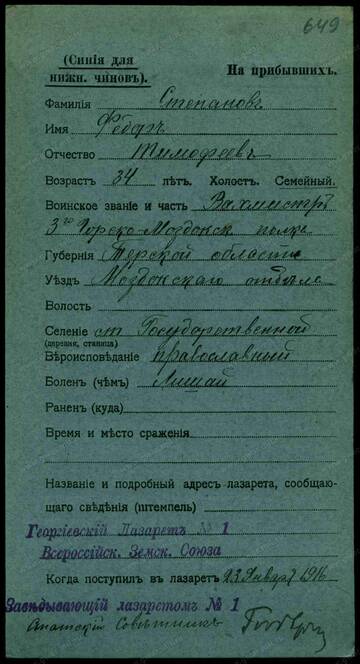 649
(Синія для
нижн. чиновъ).
На прибывшихъ.
Фамилія Степановъ
Имя Федоръ
Отчество Тимофеевъ
Возрастъ 34 лѣтъ. Холост. Семейный.
Воинское званіе и часть Вахмистръ
3го Горско-Моздокск полка
Губернія Терской области
Уѣздъ Моздокскаго отдѣла
Волость
Селеніе ст Государственной
(деревня, станица)
Вѣроисповѣданіе православный
Боленъ (чѣмъ) Лишай
Раненъ (куда)
Время и мѣсто сраженія
Названіе и подробный адресъ лазарета, сообщаю-
щаго свѣдѣнія (штемпель)
Георгіевскій Лазаретъ № 1
Всероссійск. Земск. Союза
Когда поступилъ въ лазаретъ 23 Январ 1916
Завѣдывающій лазаретомъ № 1
Совѣтникъ